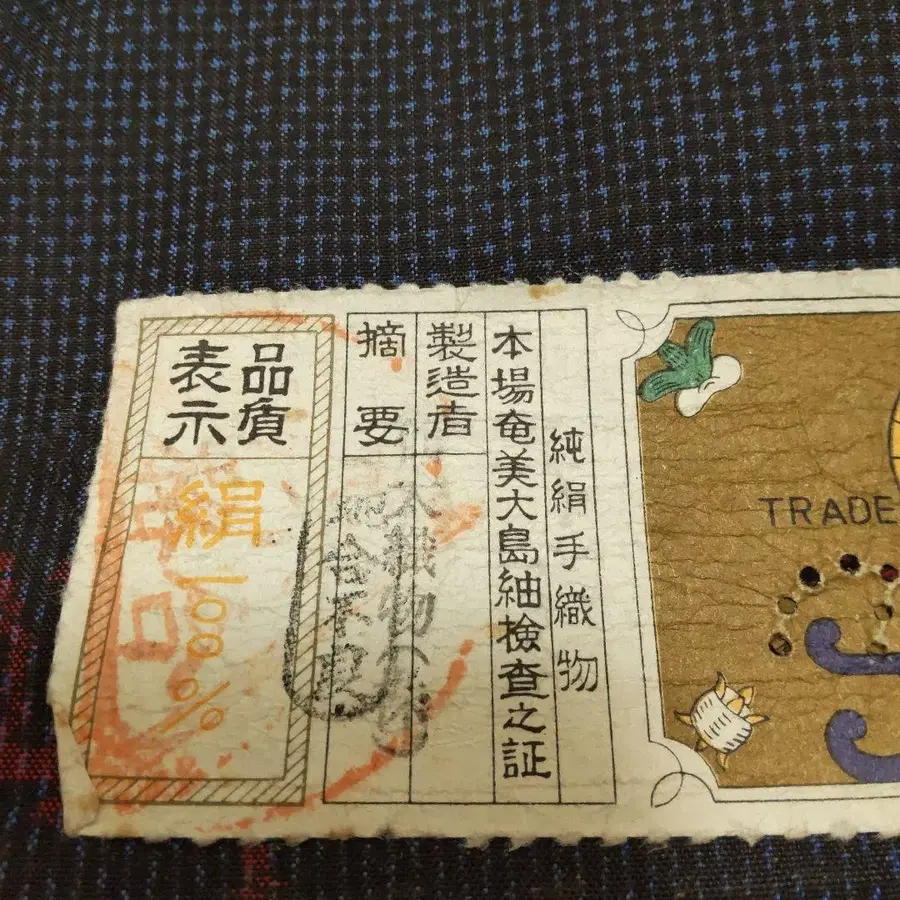 純絹手織物
本場奄美大島紬検査之証
製造者
摘要
品質
表示
絹100%
TRADE